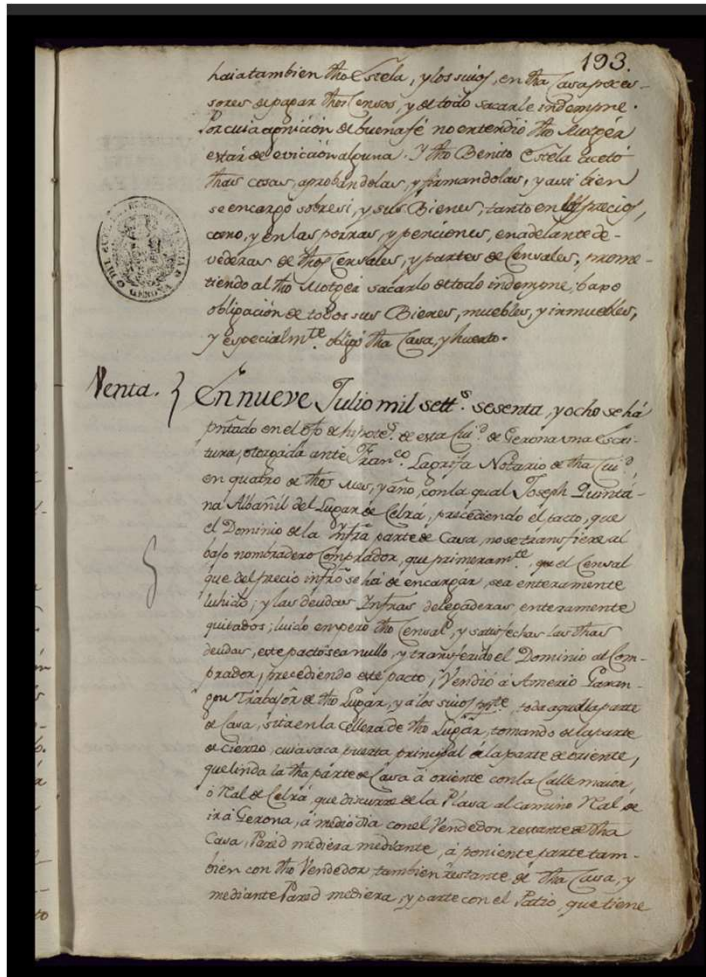 193.
haia tambien dho Estela, y los suios, en dha Casa poces-
sores de pagar dhos Censos, y de todo sacarle indempne.
Por cuia agnición de buena fé no entendió dho Motger
estár de evicción alguna. Y dho Benito Estela acetó
dhas cosas, aprobandolas, y firmandolas, y assi bien
se encargó sobre si, y sus Bienes, tanto en los precios,
como, y en las porratas, y penciones, en adelante de-
vederas de dhos Censales, y partes de Censales, prome-
tiendo al dho Motger sacarlo de todo indempne, baxo
obligación de todos sus Bienes, muebles, y inmuebles,
y especialmte. obligó dha Casa, y huerto.
Venta. } En nueve Julio mil sett.s sesenta, y ocho se há
pntado en el ofo de hipotes. de esta Ciud. de Gerona una Escri-
tura, otorgada ante Franco. Lagrifa Notario de dha Ciud.
en quatro de dhos Mes, y año, con la qual Joseph Quintá-
na Albañil del Lugar de Celrá, precediendo el pacto, que
el Dominio de la Infra parte de Casa, no se transfiere al
bajo nombradero Comprador, que primeramte. que el Censal
que del precio infro se há de encargár, sea enteramente
luhido, y las deudas Infras delegaderas enteramente
quitados; luido empero dho Censal, y satisfechas las dhas
deudas, este pacto sea nullo, y transferido el Dominio al Com-
prador, precediendo este pacto, Vendió á Amerio Garan-
gou Trabajor. de dho Lugar, y a los suios mte. toda aquella parte
de Casa, sita en la Cellera de dho Lugár, tomando de la parte
de Cierzo, cuia saca puerta principal de la parte de oriente,
que linda la dha párte de Casa á oriente con la Calle maior,
ó Rál de Celrá, que discurre de la Plasa al camino Rál de
ir á Gerona, á medio dia con el Vendedor restante de dha
Casa, Paréd mediera mediante, á poniente parte tam-
bien con dho Vendedor tambien restante de dha Casa, y
mediante Paréd mediera, y parte con el Patio, que tiene